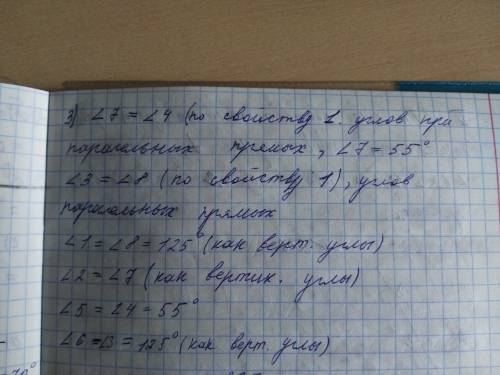 3) ∠7 = ∠4 (по свойству 1. углов при
паралельных прямых, ∠7 = 55°
∠3 = ∠8 (по свойству 1), углов
паралельных прямых
∠1 = ∠8 = 125° (как верт. углы)
∠2 = ∠7 (как вертик. углы)
∠5 = ∠4 = 55°
∠6 = ∠3 = 125° (как верт. углы)